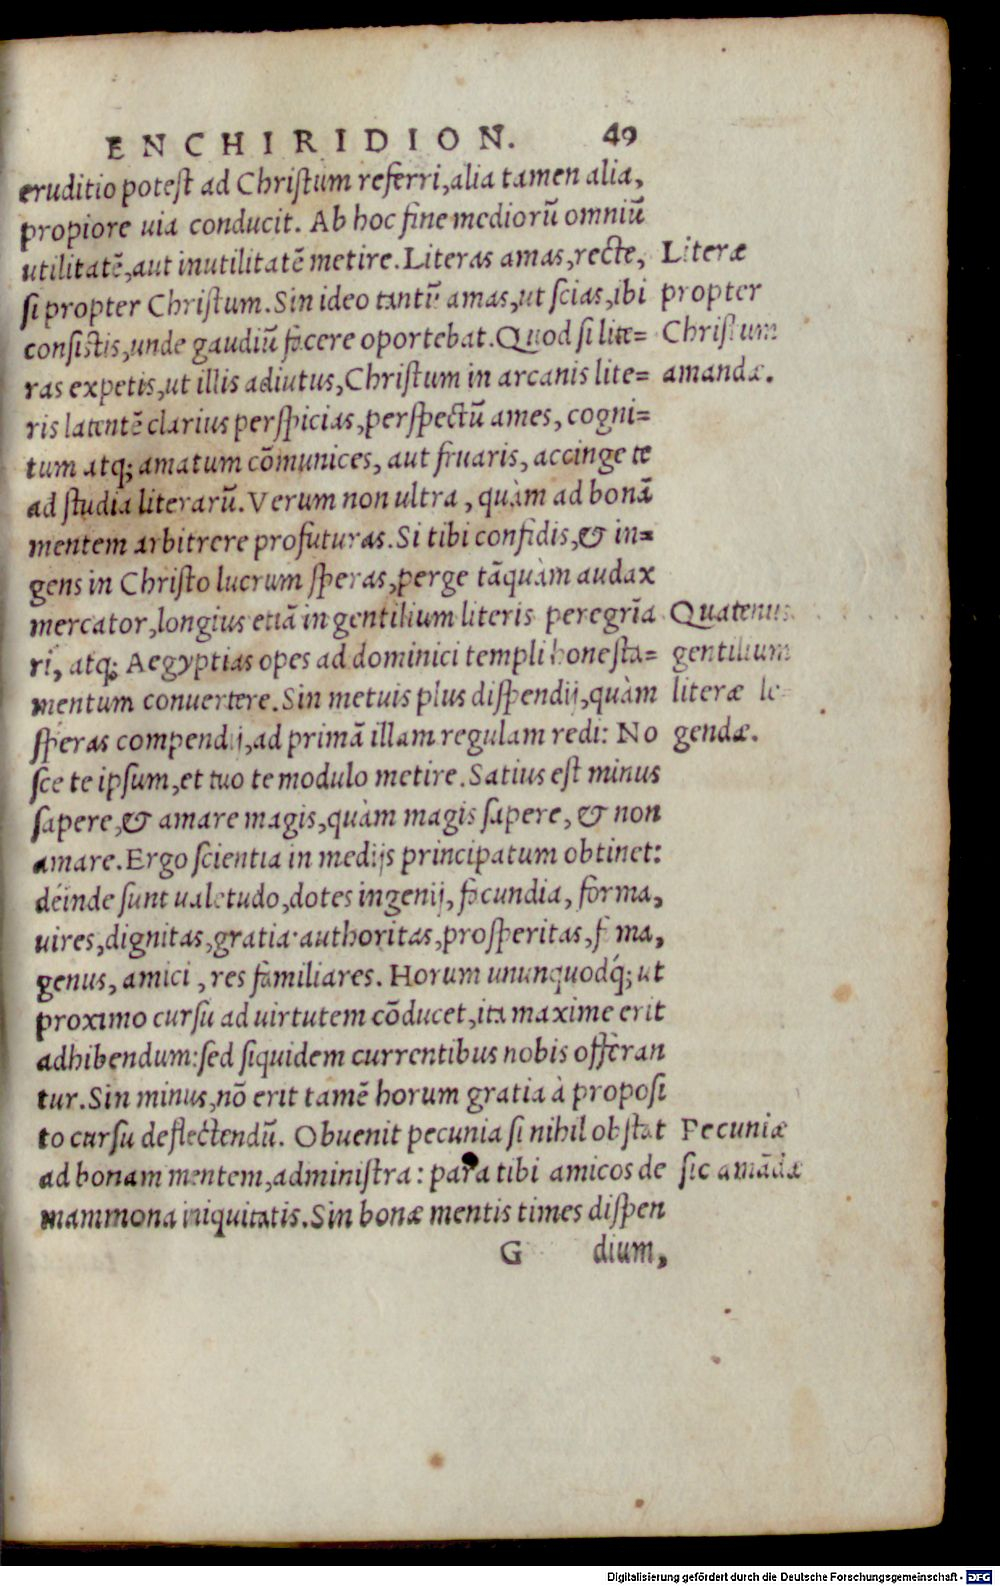 ENCHIRIDION. 49
eruditio potest ad Christum referri, alia tamen alia,
propiore uia conducit. Ab hoc fine mediorũ omniũ
utilitatẽ, aut inutilitatẽ metire. Literas amas, recte,
si propter Christum. Sin ideo tantũ amas, ut scias, ibi
consistis, unde gaudiũ facere oportebat. Quod si lite=
ras expetis, ut illis adiutus, Christum in arcanis lite=
ris latentẽ clarius perspicias, perspectũ ames, cogni=
tum atq; amatum cõmunices, aut fruaris, accinge te
ad studia literarũ. Verum non ultra, quàm ad bonã
mentem arbitrere profuturas. Si tibi confidis, & in=
gens in Christo lucrum speras, perge tãquàm audax
mercator, longius etiã in gentilium literis peregrĩa
ri, atq; Aegyptias opes ad dominici templi honesta=
mentum conuertere. Sin metuis plus dispendij, quàm
speras compendij, ad primã illam regulam redi: No
sce te ipsum, et tuo te modulo metire. Satius est minus
sapere, & amare magis, quàm magis sapere, & non
amare. Ergo scientia in medijs principatum obtinet:
déinde sunt ualetudo, dotes ingenij, facundia, forma,
uires, dignitas, gratia authoritas, prosperitas, f ma,
genus, amici, res familiares. Horum ununquodq́; ut
proximo cursu ad uirtutem cõducet, ita maxime erit
adhibendum: sed siquidem currentibus nobis offeran
tur. Sin minus, nõ erit tamẽ horum gratia à proposi
to cursu deflectendũ. Obuenit pecunia si nihil obstat
ad bonam mentem, administra: para tibi amicos de
mammona iniquitatis. Sin bonæ mentis times dispen
G dium,
Literæ
propter
Christum
amandæ.
Quatenus
gentilium
literæ le=
gendæ.
Pecuniæ
sic amãdæ
Digitalisierung gefördert durch die Deutsche Forschungsgemeinschaft - DFG